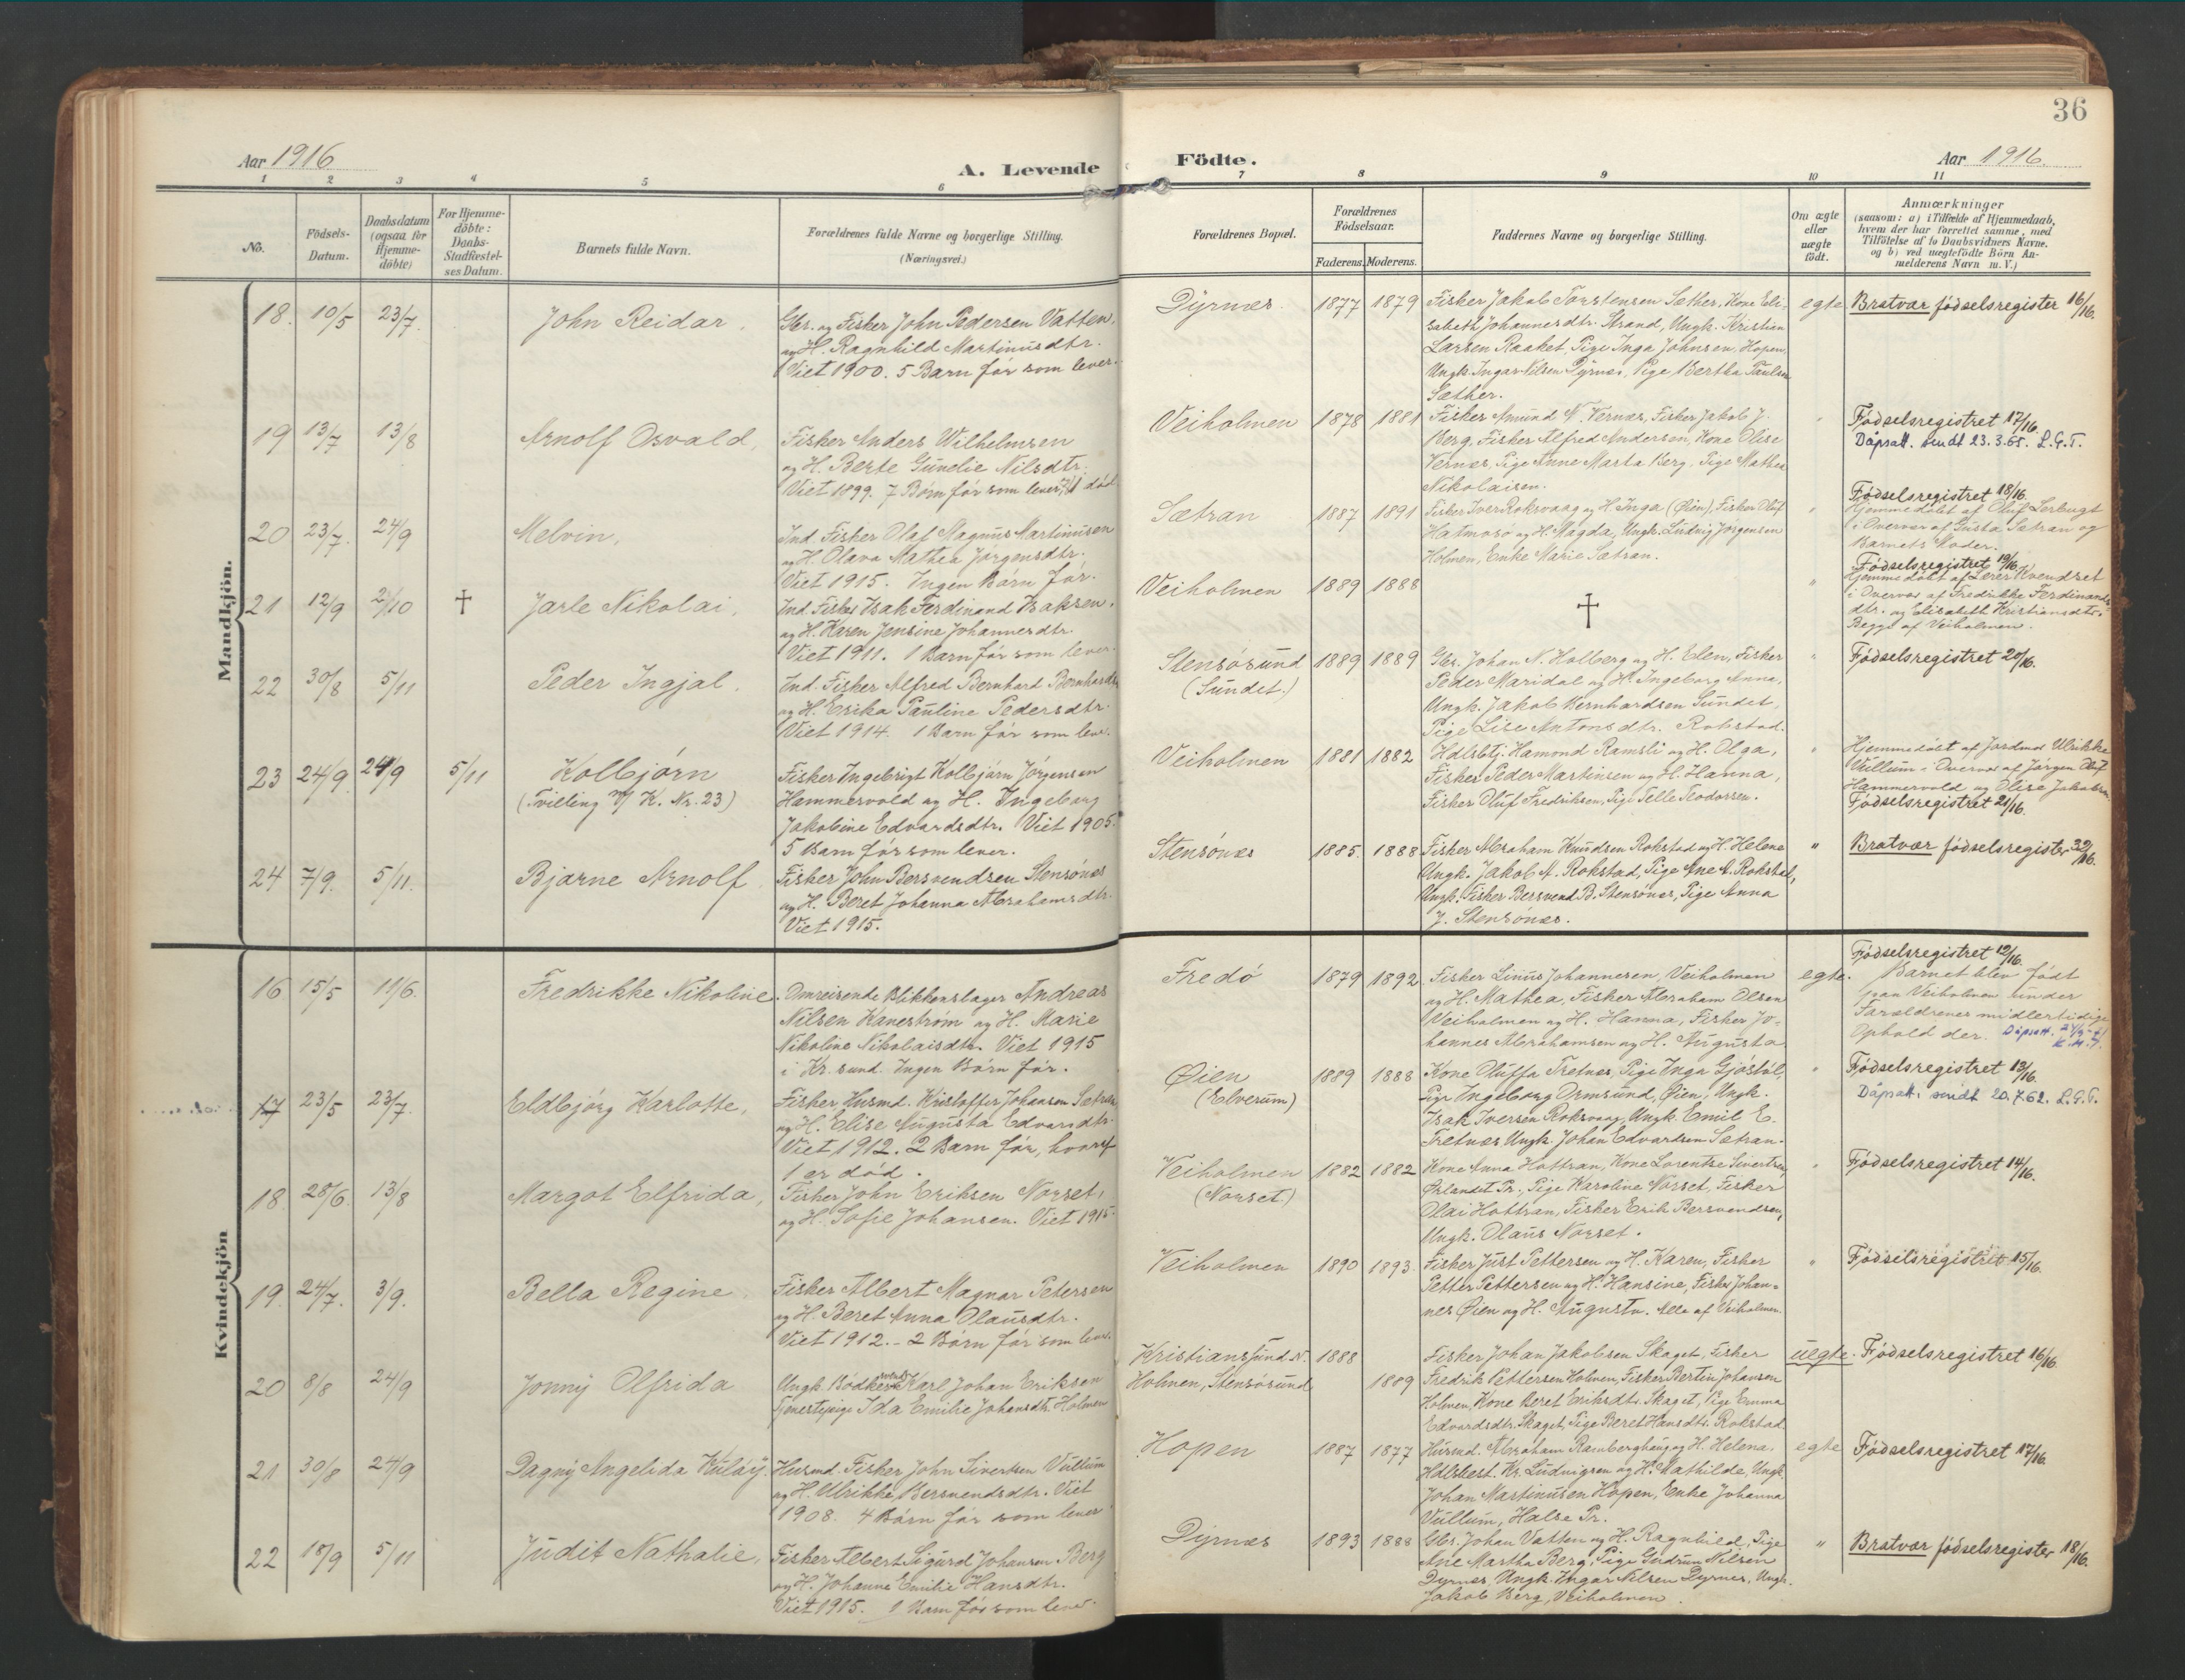 36
Aar 1916
A. Levende
Födte.
Aar 1916.
1 2 3 4 5 6 7 8 9 10 11
No.
Födsels-
Datum.
Daabsdatum
(ogsaa for
Hjemme-
döbte)
For Hjemme-
döbte:
Daabs-
Stadfæstel-
ses Datum.
Barnets fulde Navn.
Forældrenes fulde Navne og borgerlige Stilling.
(Næringsvei.)
Forældrenes Bopæl.
Forældrenes
Födselsaar.
Faderens. Moderens.
Faddernes Navne og borgerlige Stilling.
Om ægte
eller
uægte
födt.
Anmærkninger
(saasom: a) i Tilfælde af Hjemmedaab,
hvem der har forrettet samme, med
Tilföielse af to Daabsvidners Navne.
og b) ved uægtefödte Börn An-
melderens Navn m. V.)
Mandkjön.
18. 10/5 23/7.
John Reidar.
Gbr. og Fisker John Pedersen Vatten,
og H. Ragnhild Martinusdtr.
Viet 1900. 5 Barn før som lever.
Dyrnæs 1877 1879
Fisker Jakob Torstensen Sæther, Kone Eli-
sabeth Johannesdtr. Strand, Ungk. Kristian
Larsen Raaket, Pige Inga Johnsen, Hopen,
Ungk. Ingar Nilsen Dyrnes, Pige Bertha Paulsen
Sæther.
egte
Bratvær fødselsregister 16/16.
19 13/7 13/8
Arnolf Osvald,
Fisker Anders Wilhelmsen
og H. Berte Gunelie Nilsdtr.
Viet 1899. 7 Børn før som lever, 1 død.
Veiholmen 1878 1881
Fisker Amund N. Vernæs, Fisker Jakob J.
Berg, Fisker Alfred Andersen, Kone Olise
Vernæs, Pige Anne Marta Berg, Pige Mathea
Nikolaisen.
"
Fødselsregistret 17/16.
Dåpsatt. sendt 23.3.65. L.G.T.
20 23/7. 24/9
Melvin,
Ind. Fisker Olaf Magnus Martinusen
og H. Olava Mathea Jørgensdtr.
Viet 1915. Ingen Børn før.
Sætran 1887 1891
Fisker Iver Roksvaag og H. Inga (Øien), Fisker Oluf
Hatmosø og H. Magda, Ungk. Ludvig Jørgensen
Holmen, Enke Marie Sætran.
"
Fødselsregistret 18/16.
Hjemmedøbt af Oluf Lerbugt
i Overvær af Gusta Sætran og
Barnets Moder.
21 12/9 2/10 †
Jarle Nikolai,
Ind. Fisker Isak Ferdinand Isaksen,
og H. Karen Jensine Johannesdtr.
Viet 1911. 1 Barn før som lever.
Veiholmen 1889 1888
†
"
Fødselsregistret 19/16.
Hjemmedøbt af Lærer Kvendset
i Overvær af Fredrikke Ferdinands-
dtr. og Elisabeth Kristiansdtr.
Begge af Veiholmen.
22 30/8 5/11
Peder Ingjal.
Ind. Fisker Alfred Bernhard Bernhardsen
og H. Erika Pauline Pedersdtr.
Viet 1914. 1 Barn før som lever.
Stensøsund
(Sundet.)
1889 1889
Gbr. Johan N. Holberg og H. Elen, Fisker
Peder Maridal og H. Ingeborg Anna,
Ungk. Jakob Bernhardsen Sundet,
Pige Lise Antonsdtr. Rokstad.
"
Fødselsregistret 20/16.
23 24/9. 24/9 5/11
Kolbjørn
(Tvilling m/ K. Nr. 23)
Fisker Ingebrigt Kolbjørn Jørgensen
Hammervold og H. Ingeborg
Jakobine Edvardsdtr. Viet 1905.
5 Barn før som lever.
Veiholmen 1881 1882
Hdlsbtj. Hamond Ramsli og H. Olga,
Fisker Peder Martinsen og H. Hanna,
Fisker Oluf Fredriksen, Pige Telle Teodorsen.
"
Hjemmedøbt af Jordmor Ulrikke
Vullum i Overvær af Jørgen Oluf
Hammervold og Olise Jakobsen.
Fødselsregistret 21/16.
24 7/9. 5/11.
Bjarne Arnolf,
Fisker John Bersvendsen Stensønes
og H. Beret Johanna Abrahamsdtr.
Viet 1915.
Stensönes 1885. 1888
Fisker Abraham Knudsen Rokstad og H. Helene
Ungk. Jakob A. Rokstad, Pige Ane A. Rokstad,
Ungk. Fisker Bersvend B. Stensönes, Pige Anna
J. Stensönes.
"
Bratvær fødselsregister 32/16.
Kvindekjön
16 15/5 11/6.
Fredrikke Nikoline.
Omreisende Blikkenslager Andreas
Nilsen Kanestrøm og H. Marie
Nikoline Nikolaisdtr. Viet 1915
i Kr.sund. Ingen Børn før.
Fredø 1879 1892
Fisker Linus Johannesen, Veiholmen
og H. Mathea, Fisker Abraham Olsen
Veiholmen og H. Hanna, Fisker Jo-
hannes Abrahamsen og H. Augusta
egte.
Fødselsregistret 12/16.
Barnet blev født
paa Veiholmen under
Forældrenes midlertidige
Ophold der. Dåpsatt.
17 23/5 23/7.
Eldbjørg Karlotte,
Fisker Husmd. Kristoffer Johansen Sætran
og H. Elise Augusta Edvardsdtr.
Viet 1912. 2 Barn før, hvoraf
1 er død.
Øien
(Elverum)
1889 1888
Kone Oluffa Tretnes, Pige Inga Gjøstøl,
Pige Ingeborg Ormsund, Øien, Ungk.
Isak Iversen Roksvaag, Ungk. Emil E.
Tretnes Ungk. Johan Edvardsen Sætran.
"
Fødselsregistret 13/16.
Dåpsatt. sendt 20.7.62. L.G.T.
18. 28/6 13/8
Margot Elfrida,
Fisker John Eriksen Norset,
og H. Sofie Johansen. Viet 1915.
Veiholmen
(Norset)
1882 1882
Kone Anna Hottran, Kone Lorentze Sivertsen,
Ørlandet Pr., Pige Karoline Norset, Fisker
Olai Hottran, Fisker Erik Bersvendsen,
Ungk. Olaus Norset.
"
Fødselsregistret 14/16.
19. 24/7. 3/9.
Bella Regine
Fisker Albert Magnar Petersen
og H. Beret Anna Olausdtr.
Viet 1912. - 2 Børn før som lever.
Veiholmen 1890 1893.
Fisker Just Pettersen og H. Karen, Fisker
Petter Pettersen og H. Hansine, Fisker Johan-
nes Øien og H. Augusta. Alle af Veiholmen.
"
Fødselsregistret 15/16.
20 8/8 24/9
Jonny Olfrida
Ungk. Bødkersvend Karl Johan Eriksen
Tjenestepige Ida Emilie Johansdtr. Holmen
Kristianssund N. 1888
Holmen, Stensøsund 1889
Fisker Johan Jakobsen Skaget, Fisker
Fredrik Pettersen Holmen, Fisker Bertin Johansen
Holmen, Kone Beret Eriksdtr. Skaget, Pige Emma
Edvardsdtr. Skaget, Pige Beret Hansdtr. Rokstad
uegte.
Fødselsregistret 16/16.
21 30/8 24/9
Dagny Angelida Kuløy.
Husmd. Fisker John Sivertsen Vullum
og H. Ulrikke Bersvendsdtr. Viet
1908. 4 Børn før som lever
Hopen 1887 1877
Husmd. Abraham Ramberghaug og H. Helena,
Hdlsbest. Kr. Ludvigsen og H. Mathilde, Ungk.
Johan Martinusen Hopen, Enke Johanna
Vullum, Halse Pr.
egte
Fødselsregistret 17/16.
22 18/9 5/11
Judit Nathalie,
Fisker Albert Sigurd Johansen Berg
og H. Johanne Emilie Hansdtr.
Viet 1915. 1 Barn før som lever.
Dyrnæs 1893 1888
Gbr. Johan Vatten og H. Ragnhild, Pige
Ane Martha Berg, Pige Gudrun Nilsen
Dyrnes, Ungk. Ingar Nilsen Dyrnes, Ungk.
Jakob Berg, Veiholmen.
"
Bratvær fødselsregister 18/16.